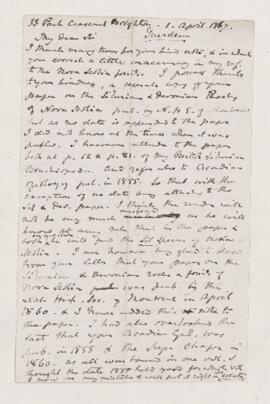 33 Park Crescent Brighton - 1. April 1867.
My Dear Sir
I thank many times for your kind note, & in which
you correct a little inaccuracy in my ref.
to the Nova Scotia fossils. I possess thanks
to your kindness, a separate copy of your
paper on the Silurian & Devonian Rocks
of Nova Scotia pub. in N. H. S. of Montreal
but as no date is appended to the paper
I did not know at the time when it was
public. I however allude to the paper
both at p. 12 & p. 81. of my British Silurian
Brachiopoda. And refer also to Acadian
Geology pub. in 1855. So that with the
exception of no date being attached to the
Sil & Dev. paper. I think the reader will
not be very much as he will
know at any rate that in the paper &
book he will find the Sil species of Nova
Scotia. I am however very glad to learn
from your letter that your paper on the
Silurian & Devonian rocks & fossils of
Nova Scotia was pub. by the
Nat. Hist. Soc. of Montreal in April
1860. & I have added this note to
the paper. I had also overlooked the
fact that your Acadian Geol. was
pub. in 1855 & the Supp. Chapter in
1860. as all was bound in one vol. I
thought the date 1855 held good for whole vol.
I now see my mistake & will put it right